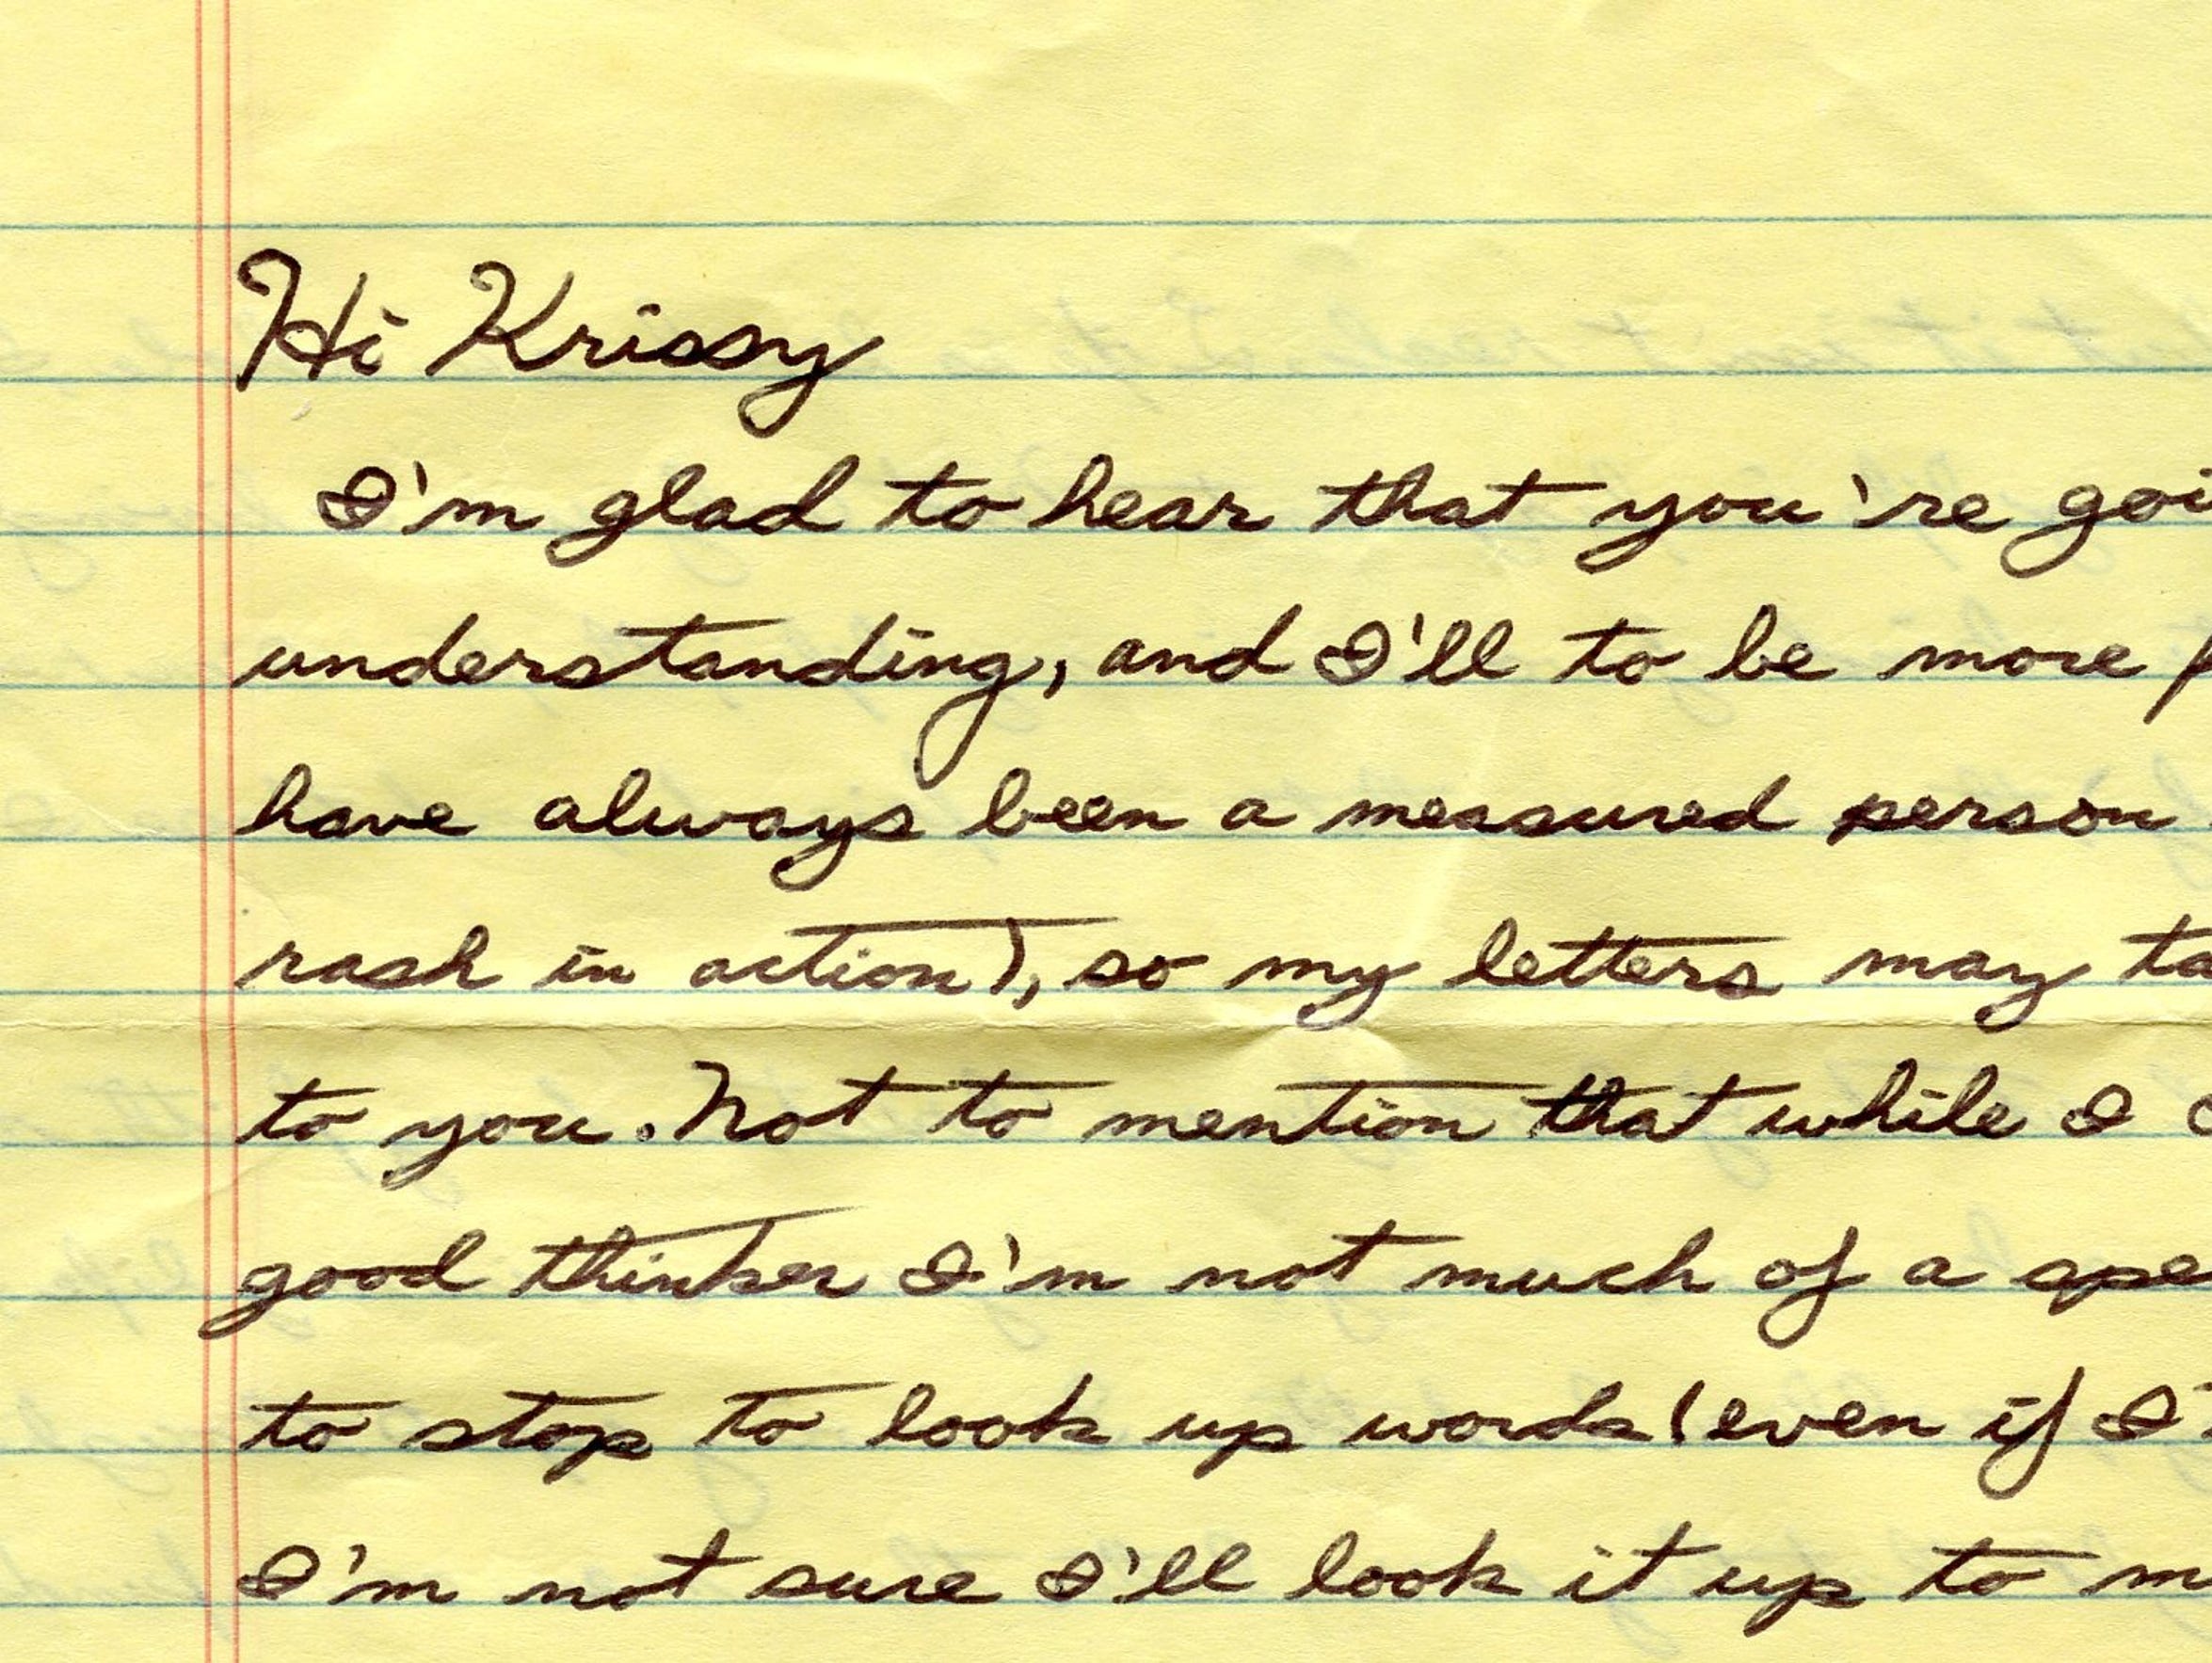 Hi Krissy
I'm glad to hear that you're goi
understanding, and I'll to be more p
have always been a measured person
rash in action), so my letters may ta
to you. Not to mention that while I
good thinker I'm not much of a spe
to stop to look up words (even if I'
I'm not sure I'll look it up to m